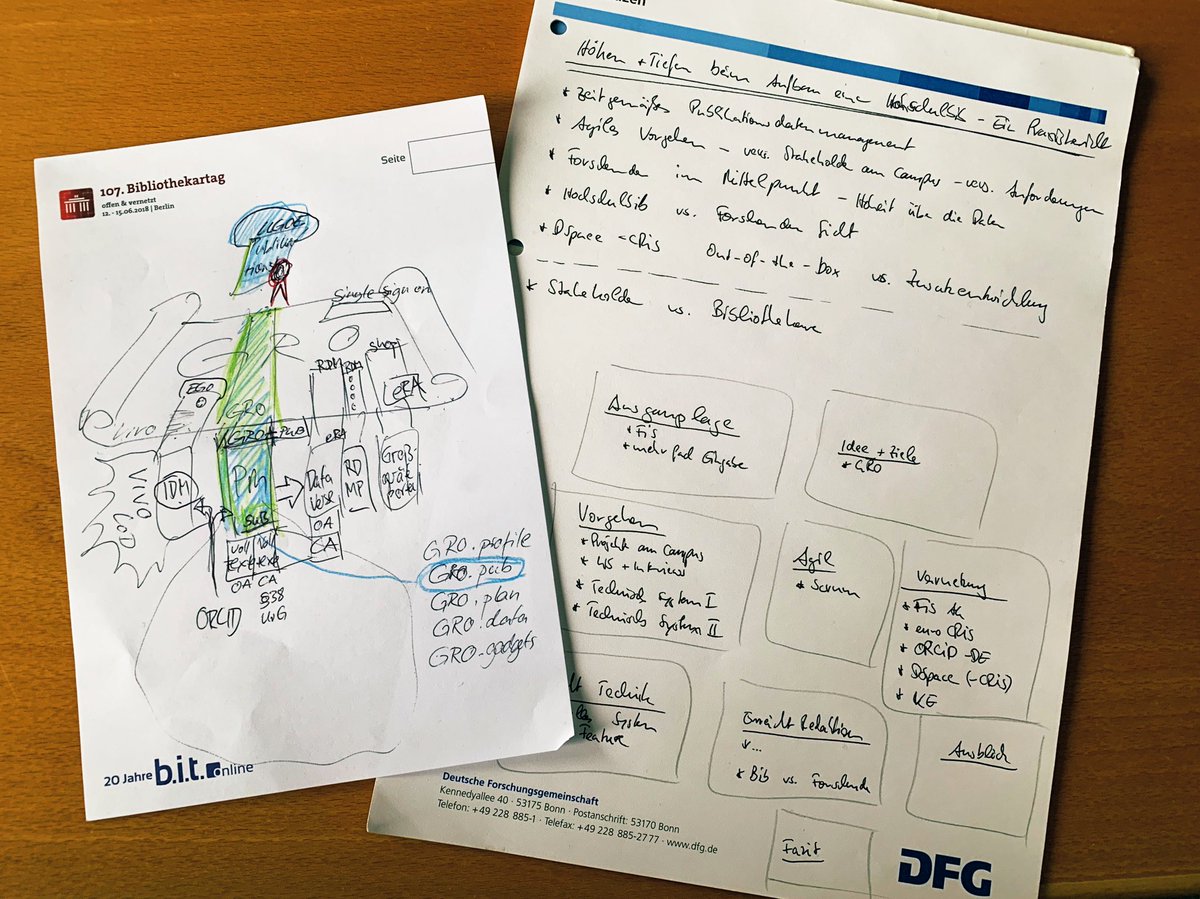 107. Bibliothekartag
offen & vernetzt
12. - 15.06.2018 | Berlin
Seite
Publika
tions
Single Sign on
GRO
EGO
RDM
shop
eRA
GRO
VIVO
GRO.pub
eRA
VIVO
LOD
IDM
PM
Data
verse
RD
MP
Groß
geräte
portal
SUB
Voll
texte
Voll
texte
OA
CA
OA
CA
§38
UrG
ORCID
GRO.profile
GRO.pub
GRO.plan
GRO.data
GRO.gadgets
20 Jahre b.i.t.online
Höhen + Tiefen beim Aufbau einer Hochschulbib - Ein Praxisbericht
* Zeitgemäßes Publikationsdatenmanagement
* Agiles Vorgehen - vers. Stakeholder am Campus - vers. Anforderungen
* Forschende im Mittelpunkt - Hoheit über die Daten
* Hochschulbib vs. Forschenden Sicht
* DSpace-CRIS Out-of-the-box vs. Zusatzentwicklung
* Stakeholder vs. Bibliothekare
Ausgangslage
* FIS
* mehrfach Eingabe
Idee + Ziele
* GRO
Vorgehen
* Projekt am Campus
* WS + Interviews
* Technisches System I
* Technisches System II
Agil
* Scrum
Vernetzung
* FIS
* euroCRIS
* ORCID-DE
* DSpace (-CRIS)
* KE
Technik
System
Feature
Erreicht Redaktion
* ...
* Bib vs. Forschende
Ausblick
Fazit
Deutsche Forschungsgemeinschaft
Kennedyallee 40 · 53175 Bonn · Postanschrift: 53170 Bonn
Telefon: +49 228 885-1 · Telefax: +49 228 885-2777 · www.dfg.de
DFG